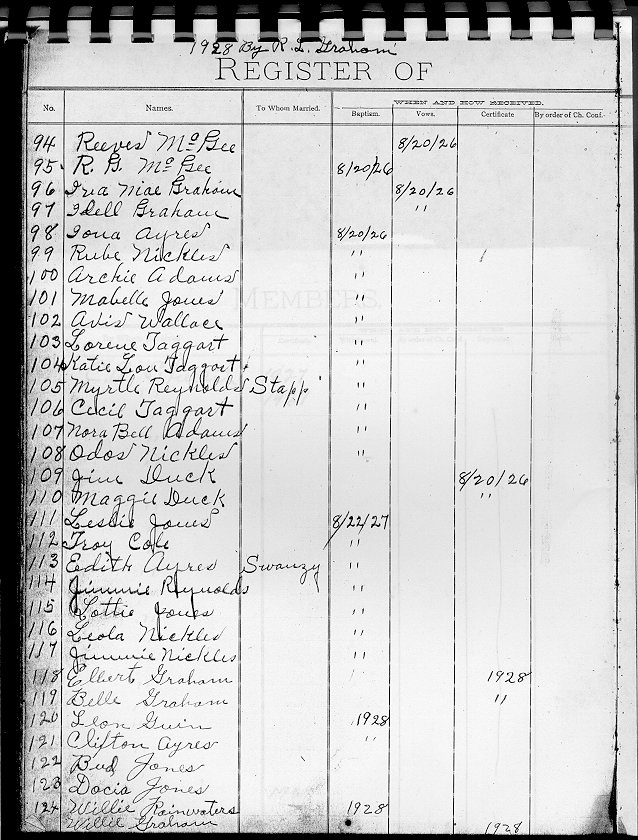 1928 By R. L. Graham
REGISTER OF
WHEN AND HOW RECEIVED.
No. Names. To Whom Married. Baptism. Vows. Certificate By order of Ch. Conf.
94 Reeves McGee 8/20/26
95 R. G. McGee 8/20/26
96 Iva Mae Graham 8/20/26
97 Idell Graham "
98 Iona Ayres 8/20/26
99 Rube Nickles "
100 Archie Adams "
101 Mabelle Jones "
MEMBERS.
102 Avis Wallace "
103 Lorene Taggart "
104 Katie Lou Taggart "
105 Myrtle Reynolds Stapp "
106 Cecil Taggart "
107 Nora Bell Adams "
108 Odos Nickles "
109 Jim Duck 8/20/26
110 Maggie Duck "
111 Leslie Jones 8/22/27
112 Troy Cole "
113 Edith Ayres Swanzy "
114 Jimmie Reynolds "
115 Lottie Jones "
116 Leola Nickles "
117 Jimmie Nickles "
118 Elbert Graham 1928
119 Belle Graham "
120 Leon Guin 1928
121 Clifton Ayres "
122 Bud Jones
123 Docia Jones
124 Willie Rainwaters 1928
Willie Graham 1928